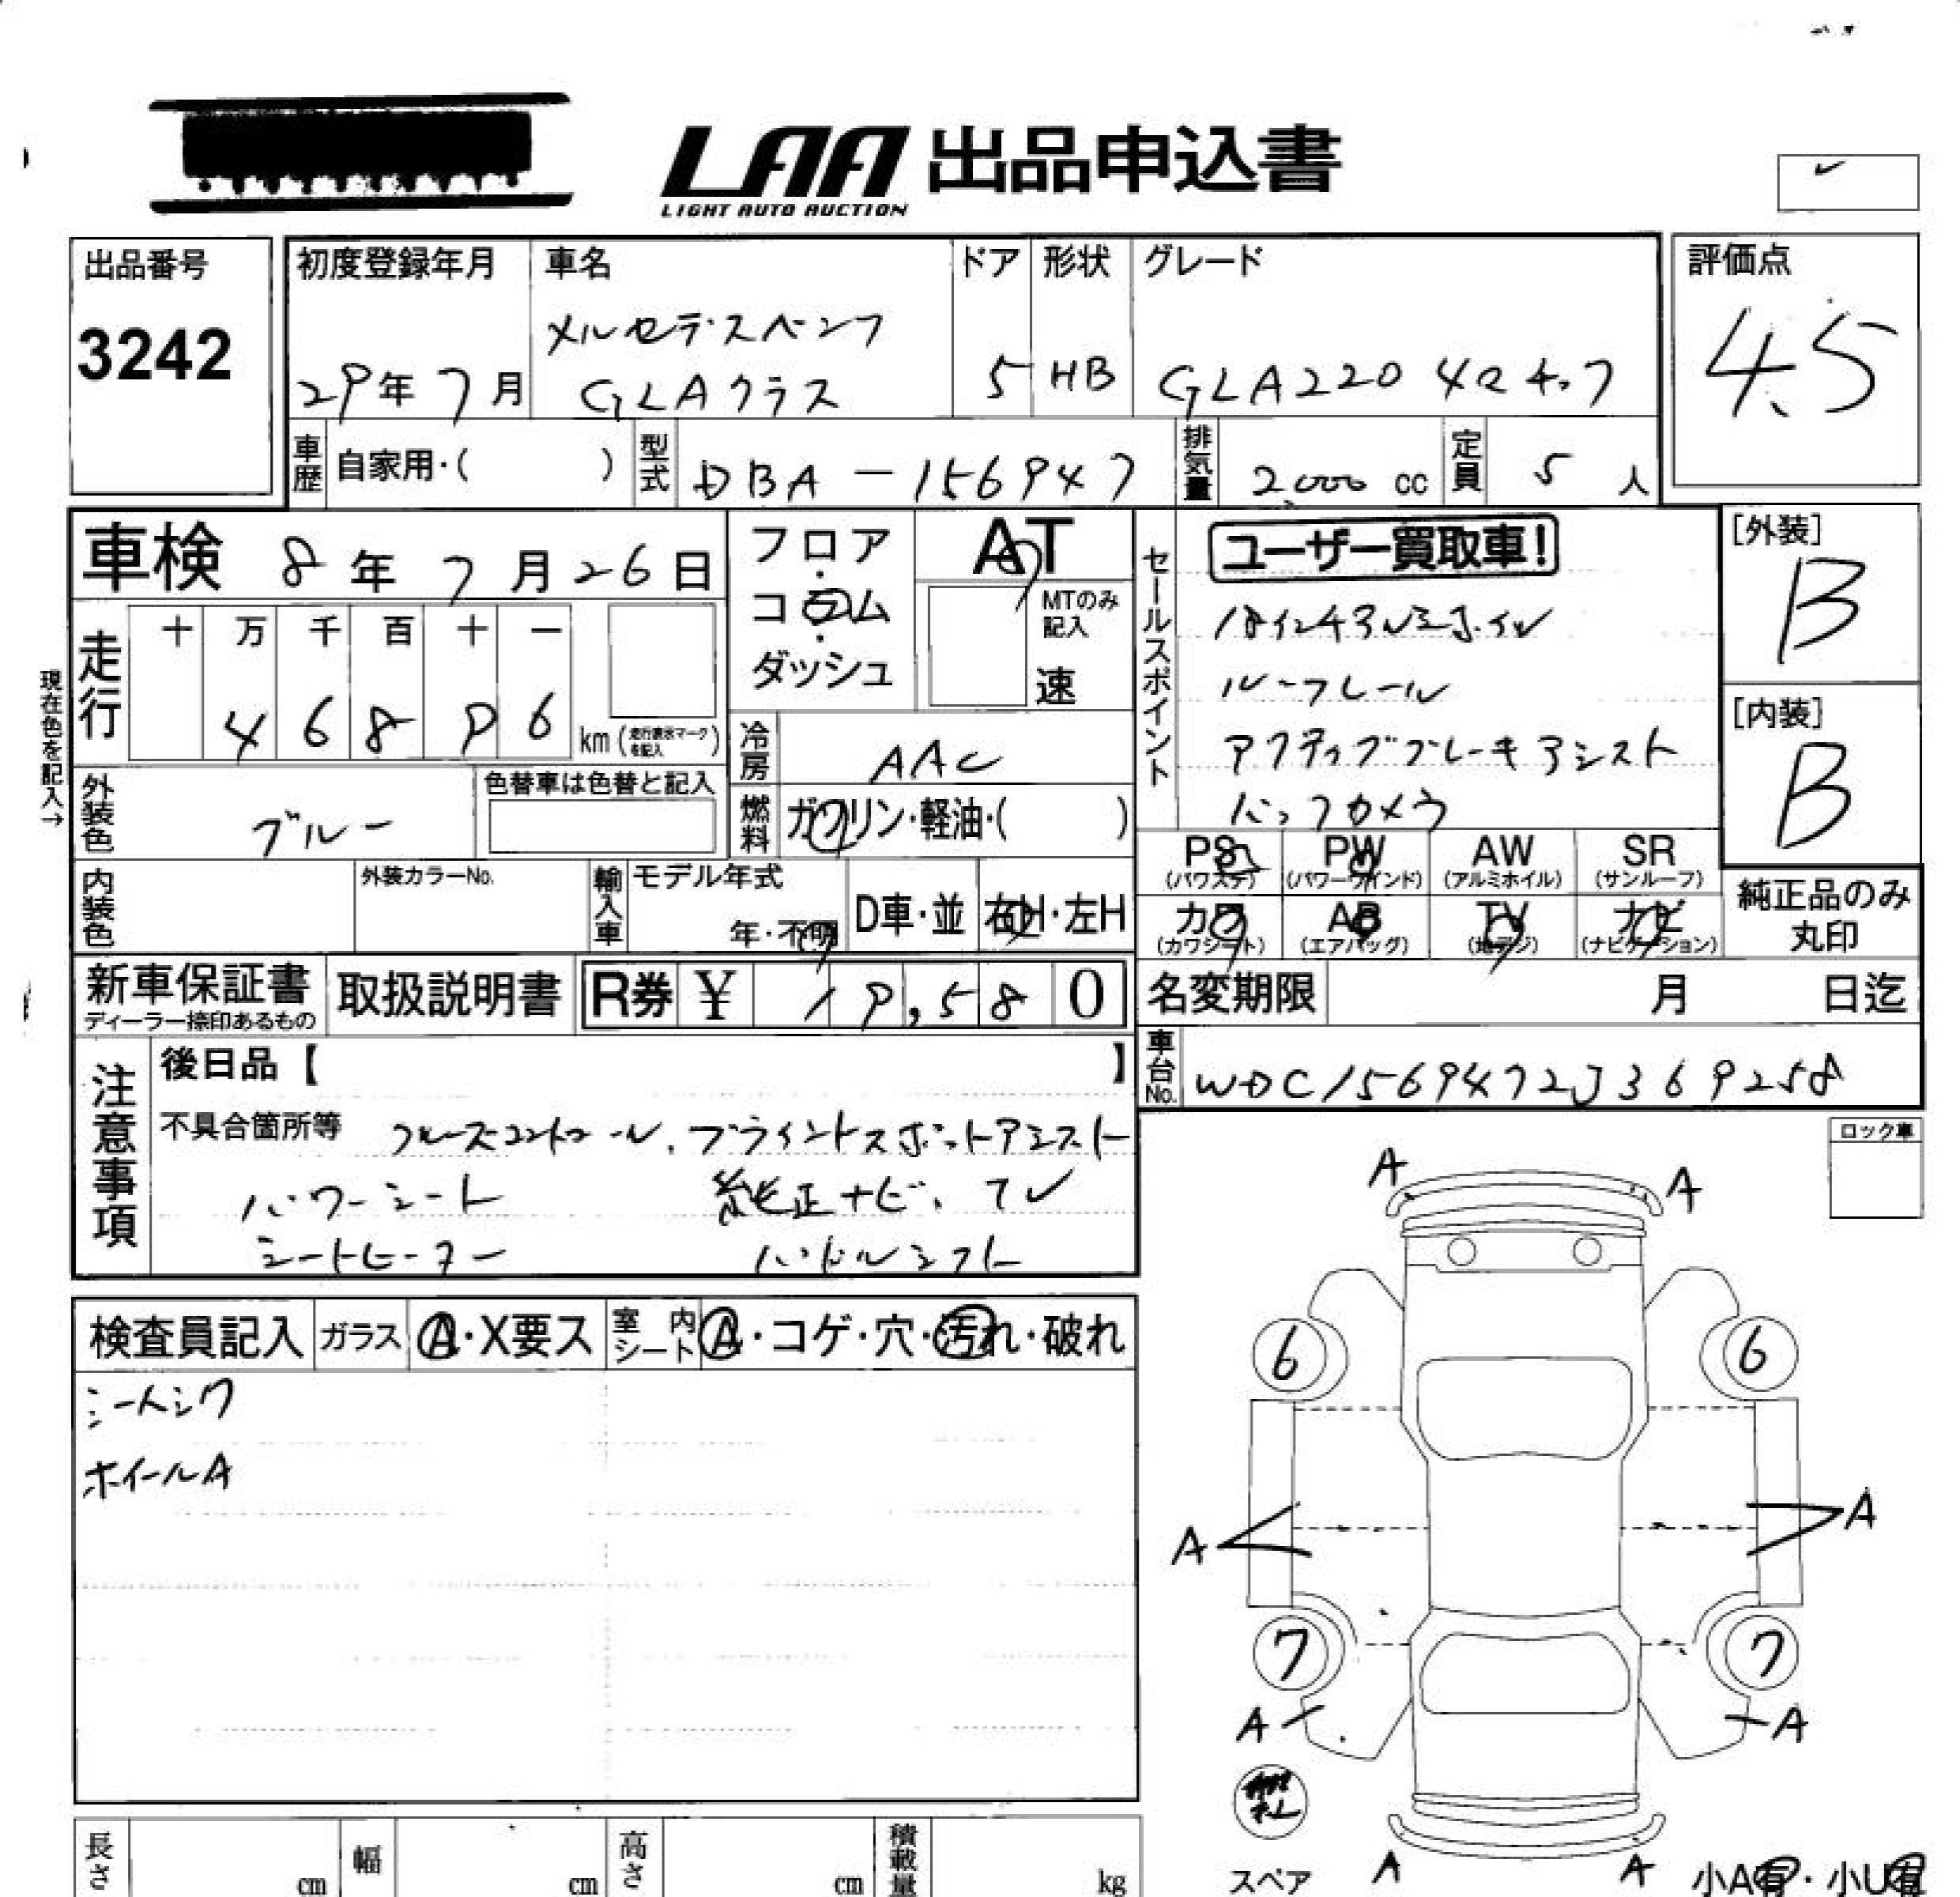 LAA 出品申込書
LIGHT AUTO AUCTION
出品番号
3242
初度登録年月
29年7月
車名
メルセデスベンツ
GLAクラス
ドア
5
形状
HB
グレード
GLA220 4マチック
評価点
4.5
車歴 自家用・( )
型式 DBA-156947
排気量 2,000 cc
定員 5 人
車検 8年7月26日
走行 十 万 千 百 十 一
4 6 8 9 6 km (走行表示マークを記入)
現在色を記入→
外装色 ブルー
色替車は色替と記入
内装色
外装カラーNo.
輸入車 モデル年式
年・不明
D車・並 右H・左H
フロア・コラム・ダッシュ
AT
MTのみ記入
速
冷房 AAC
燃料 ガソリン・軽油・( )
セールスポイント
ユーザー買取車!
18インチアルミホイル
ルーフレール
アクティブブレーキアシスト
バックカメラ
[外装]
B
[内装]
B
PS (パワステ) PW (パワーウインド) AW (アルミホイル) SR (サンルーフ)
カワ (カワシート) AB (エアバッグ) TV (地デジ) ナビ (ナビゲーション)
純正品のみ丸印
新車保証書
ディーラー捺印あるもの
取扱説明書
R券 ¥ 19,580
名変期限 月 日迄
車台No. WDC1569472J369258
注意事項
後日品【 】
不具合箇所等 クルーズコントロール、ブラインドスポットアシスト
パワーシート 純正ナビ、TV
シートヒーター ハンドルシフト
ロック車
検査員記入 ガラス A・X要ス 室内シート A・コゲ・穴・汚れ・破れ
シートシワ
ホイールA
A A
6 6
A A
7 7
A A
スペア
A A
小A有・小U有
長さ cm 幅 cm 高さ cm 積載量 kg